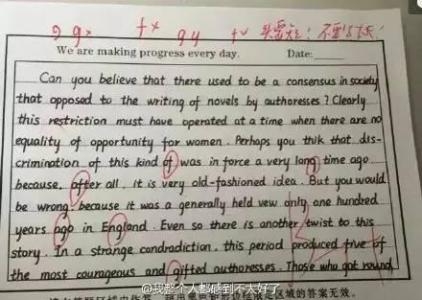 g g× f× g y f√ 头要短! 不要太长!
We are making progress every day. Date:
Can you believe that there used to be a consensus in society
that opposed to the writing of novels by authoresses? Clearly
this restriction must have operated at a time when there are no
equality of opportunity for women. Perhaps you thik that dis-
crimination of this kind of was in force a very long time ago
because, after all, it is very old-fashioned idea. But you would
be wrong, because it was a generally held vew only one hundred
years ago in England. Even so there is another twist to this
story. In a strange condradiction, this period produced five of
the most courageous and gifted authoresses. Those who got round
@我整个人都感到不太好了
区域的答案无效。